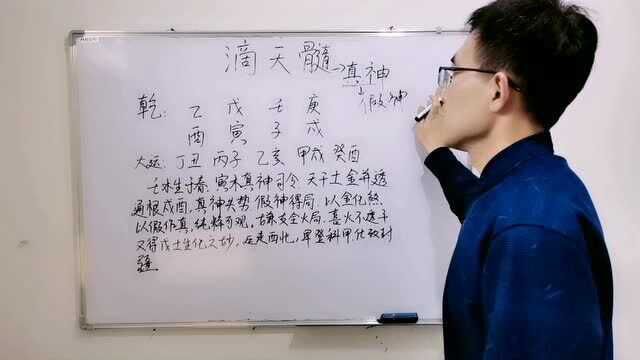 滴天髓→真神
↓
假神
乾: 乙 戊 壬 庚
酉 寅 子 戌
大运: 丁丑 丙子 乙亥 甲戌 癸酉
壬水生于春, 寅木真神司令, 天干土金并透
通根戌酉, 真神失势 假神得局, 以金化煞
以假作真, 纯粹可观。 支全火局, 喜火不透干
又得戊土生化之妙, 运走西北, 早登科甲, 仕致封
疆